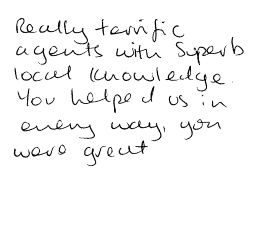 Really terrific
agents with Superb
local knowledge.
You helped us in
every way, you
were great